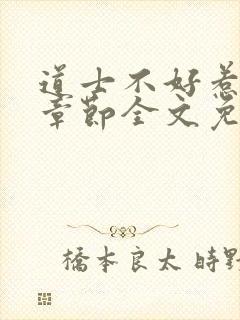 道士不好惹
章节全文免
桥本良太 時野